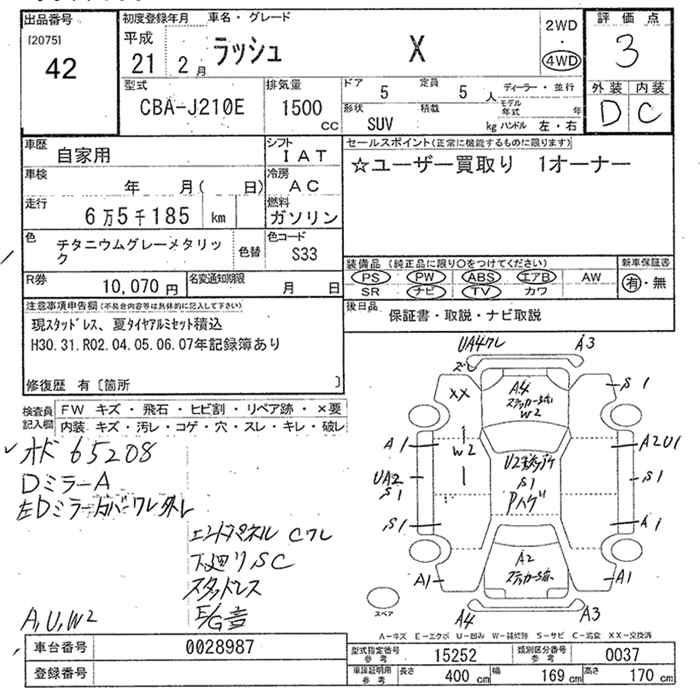 出品番号
[2075]
42
初度登録年月 車名・グレード
平成
21 2月 ラッシュ X
2WD
・
4WD
評価点
3
外装 内装
D C
型式
CBA-J210E
排気量
1500
CC
ドア 5 定員 5 人
形状 SUV 積載 kg
ディーラー・並行
モデル年式 年
ハンドル 左・右
車歴
自家用
シフト
IAT
車検
年 月( 日)
冷房
AC
走行
6万5千185 km
燃料
ガソリン
色
チタニウムグレーメタリック
色替
色コード
S33
R券
10,070 円
名変通知期限
月 日
セールスポイント(正常に機能するものに限ります)
☆ユーザー買取り 1オーナー
装備品 (純正品に限り○をつけてください)
PS PW ABS エアB AW
SR ナビ TV カワ
新車保証書
有・無
後日品
保証書・取説・ナビ取説
注意事項申告欄(不具合内容等は具体的に記入して下さい)
現スタッドレス、夏タイヤアルミセット積込
H30.31.R02.04.05.06.07年記録簿あり
修復歴 有〔箇所 〕
検査員記入欄
FW キズ・飛石・ヒビ割・リペア跡・×要
内装 キズ・汚レ・コゲ・穴・スレ・キレ・破レ
オド 65208
DミラーA
左Dミラーカバーワレ外レ
エンドパネル Cワレ
下廻りSC
スタッドレス
E/G音
A,U,W2
UA4ワレ
ズレ
A3
XX
A4
W2
S1
A1
W2
U2
A2U1
UA2
S1
S1
S1
Pハゲ
S1
A1
A2
A1
A1
スペア
A4
A3
A-キズ E-エクボ U-凹み W-補修跡 S-サビ C-腐食 XX-交換済
車台番号
0028987
登録番号
型式指定番号 参考
15252
類別区分番号 参考
0037
車庫証明用 参考
長さ 400 cm 幅 169 cm 高さ 170 cm